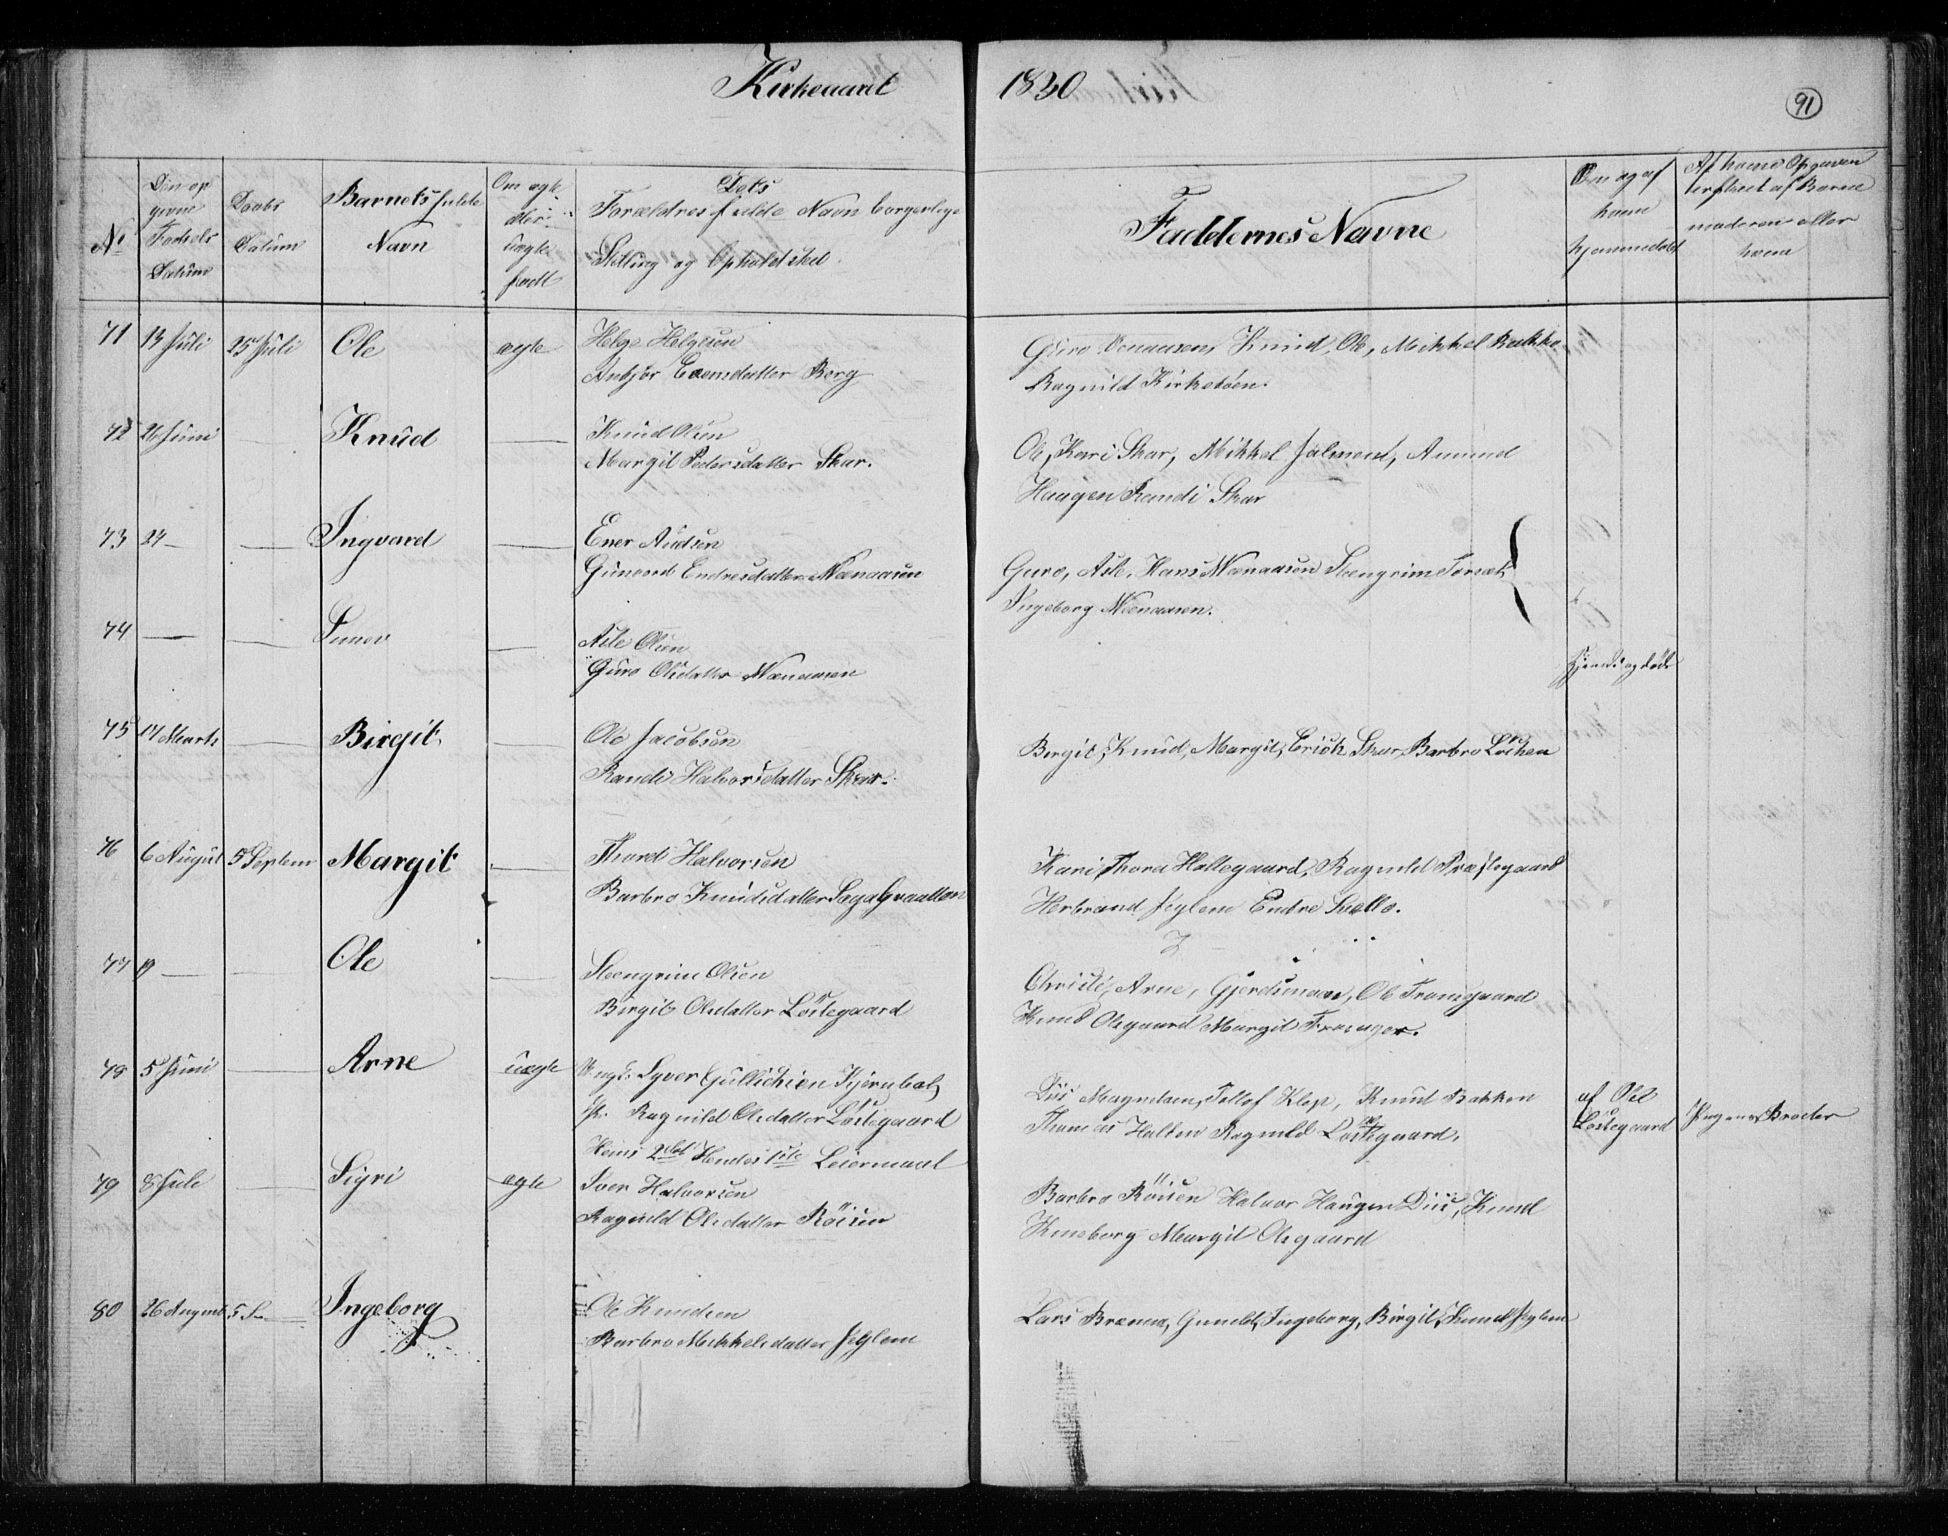 Kirkeaaret 1830
91
No
Den op
givne
Fødsels
Datum
Daabs
Datum
Barnets fulde
Navn
Om ægte
eller
uægte
født
Dets
Forældres fulde Navn borgerlige
Stilling og Opholdsted.
Faddernes Navne
Om og af
hvem
hjemmedøbt
Af hvem Opgaven
er skeet af Barne
moderen eller
hvem
71 13 Juli 25 Juli Ole ægte Helge Helgesen
Anbjør Evensdatter Berg
Guro Knud, Ole, Mikkel Bakke
Ragnild Kirketøen.
72 26 Juni Knud Knud Olsen
Margit Pedersdatter Skar.
Ole, Kari Skar, Mikkel Amund
Haagen Randi Skar
73 24 Ingvard Ener Audsen
Endresdatter Nænaasen
Guro, Asle, Hans Nænaasen Steengrim
Ingeborg Nænaasen.
74 Asle Olsen
Guro Olsdatter Nænaasen
og død
75 17 Marts Birgit Ole Jacobsen
Randi Halvorsdatter Skar.
Birgit, Knud, Margit, Erich Skar, Barbro Løkken
76 6 August 5 Septem Margit Thord Halvorsen
Barbro Knudsdatter Sagabraatten
Kari, Thora Hallegaard, Ragnild Præstegaard
Herbrand Jeglem Endre Sælle.
77 19 Ole Steengrim Olsen
Birgit Olsdatter Løstegaard
Christi, Arne, Ole Tronsgaard
Knud Olsgaard Margit
78 5 Juni Arne uægte Ungk. Syver Gullichsen Kjernbal,
P. Ragnild Olsdatter Løstegaard
Hans 2det Hendes 1ste Leiermaal
Magnelsen, Tollef Klop, Knud Bakken
Thomas Halten Ragnild Løstegaard.
af Ole
Løstegaard
Pigens Broder
79 8 Juli Sigri ægte Iver Halvorsen
Ragnild Olsdatter Röisen
Barbro Röisen Halvor Haugen Knud
Margit Olsgaard
80 26 August 5 S Ingeborg Ole Knudsen
Barbro Mikkelsdatter Jeglem
Lars Gunild, Ingeborg, Birgit, Knud Jeglem